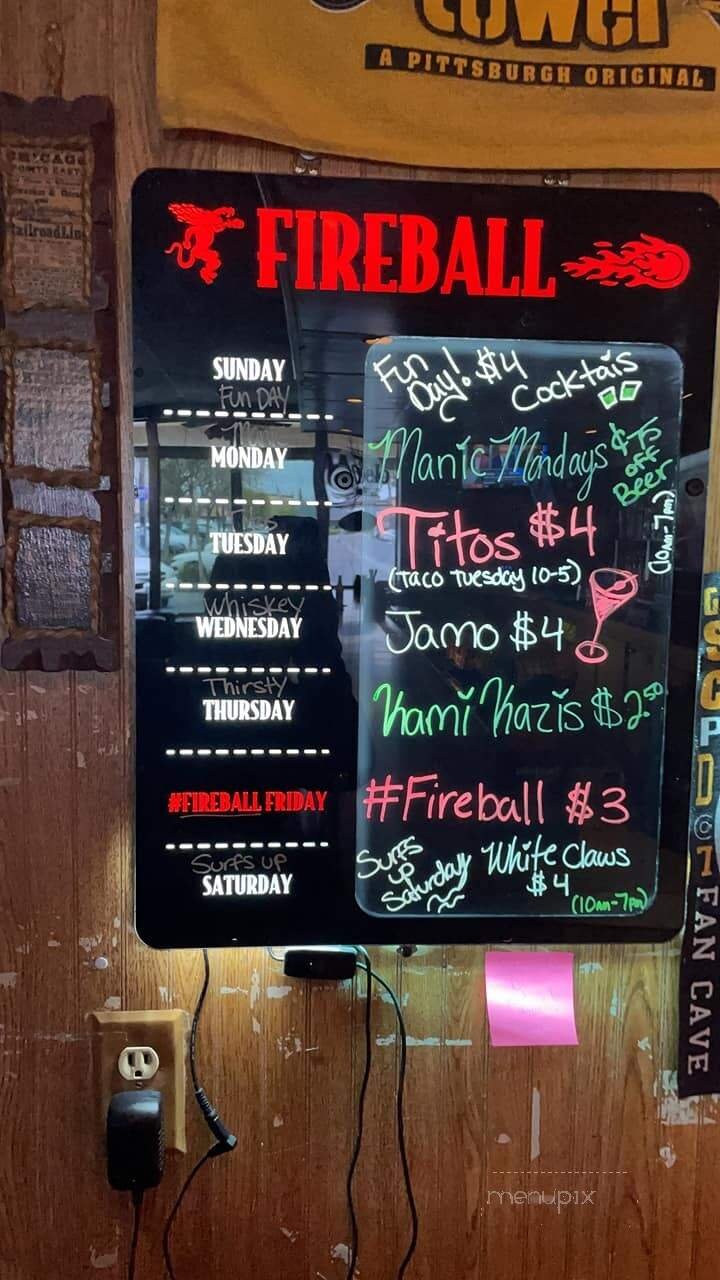 towel
A PITTSBURGH ORIGINAL
CHICAGO
Railroad Line
FIREBALL
SUNDAY
Fun DAY
Fun Day! $4 Cocktais
MONDAY
Manic
Manic Mondays
off Beer
(10am-7pm)
TUESDAY
Titos $4
(Taco Tuesday 10-5)
Whiskey
WEDNESDAY
Jamo $4
Thirsty
THURSDAY
Kami Kazis $2.50
#FIREBALL FRIDAY
#Fireball $3
Surfs up
SATURDAY
Surfs up Saturday
White Claws
$4
(10am-7pm)
FAN CAVE
menupix